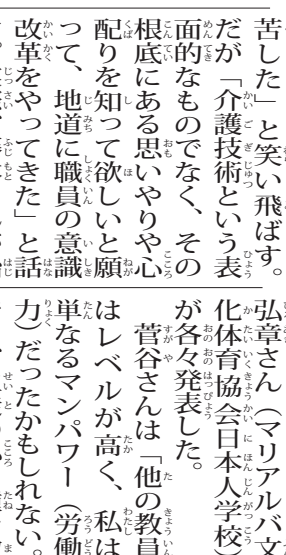 苦した」と笑い飛ばす。
だが「介護技術という表
面的なものでなく、その
根底にある思いやりや心
配りを知って欲しいと願
って、地道に職員の意識
改革をやってきた」と話
弘章さん（マリアルバ文
化体育協会日本人学校）
が各々発表した。
菅谷さんは「他の教員
はレベルが高く、私は
単なるマンパワー（労働
力）だったかもしれない。